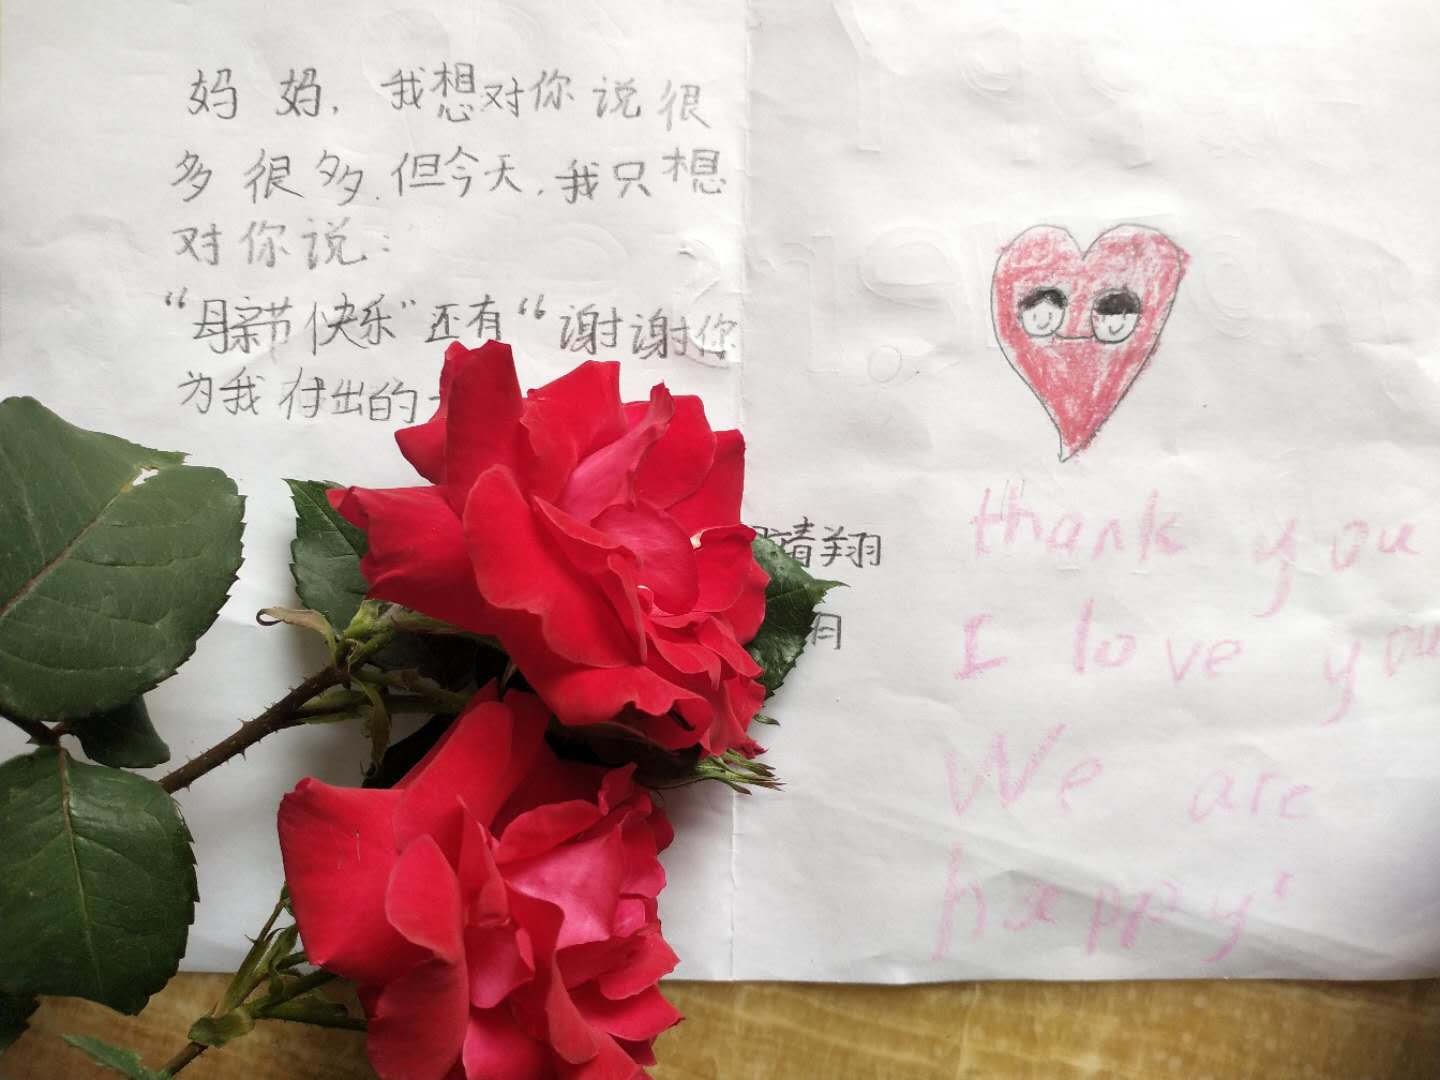 妈妈，我想对你说很
多很多，但今天，我只想
对你说：
“母亲节快乐”还有“谢谢你
为我付出的一
靖翔
月
thank you
I love you
We are
happy